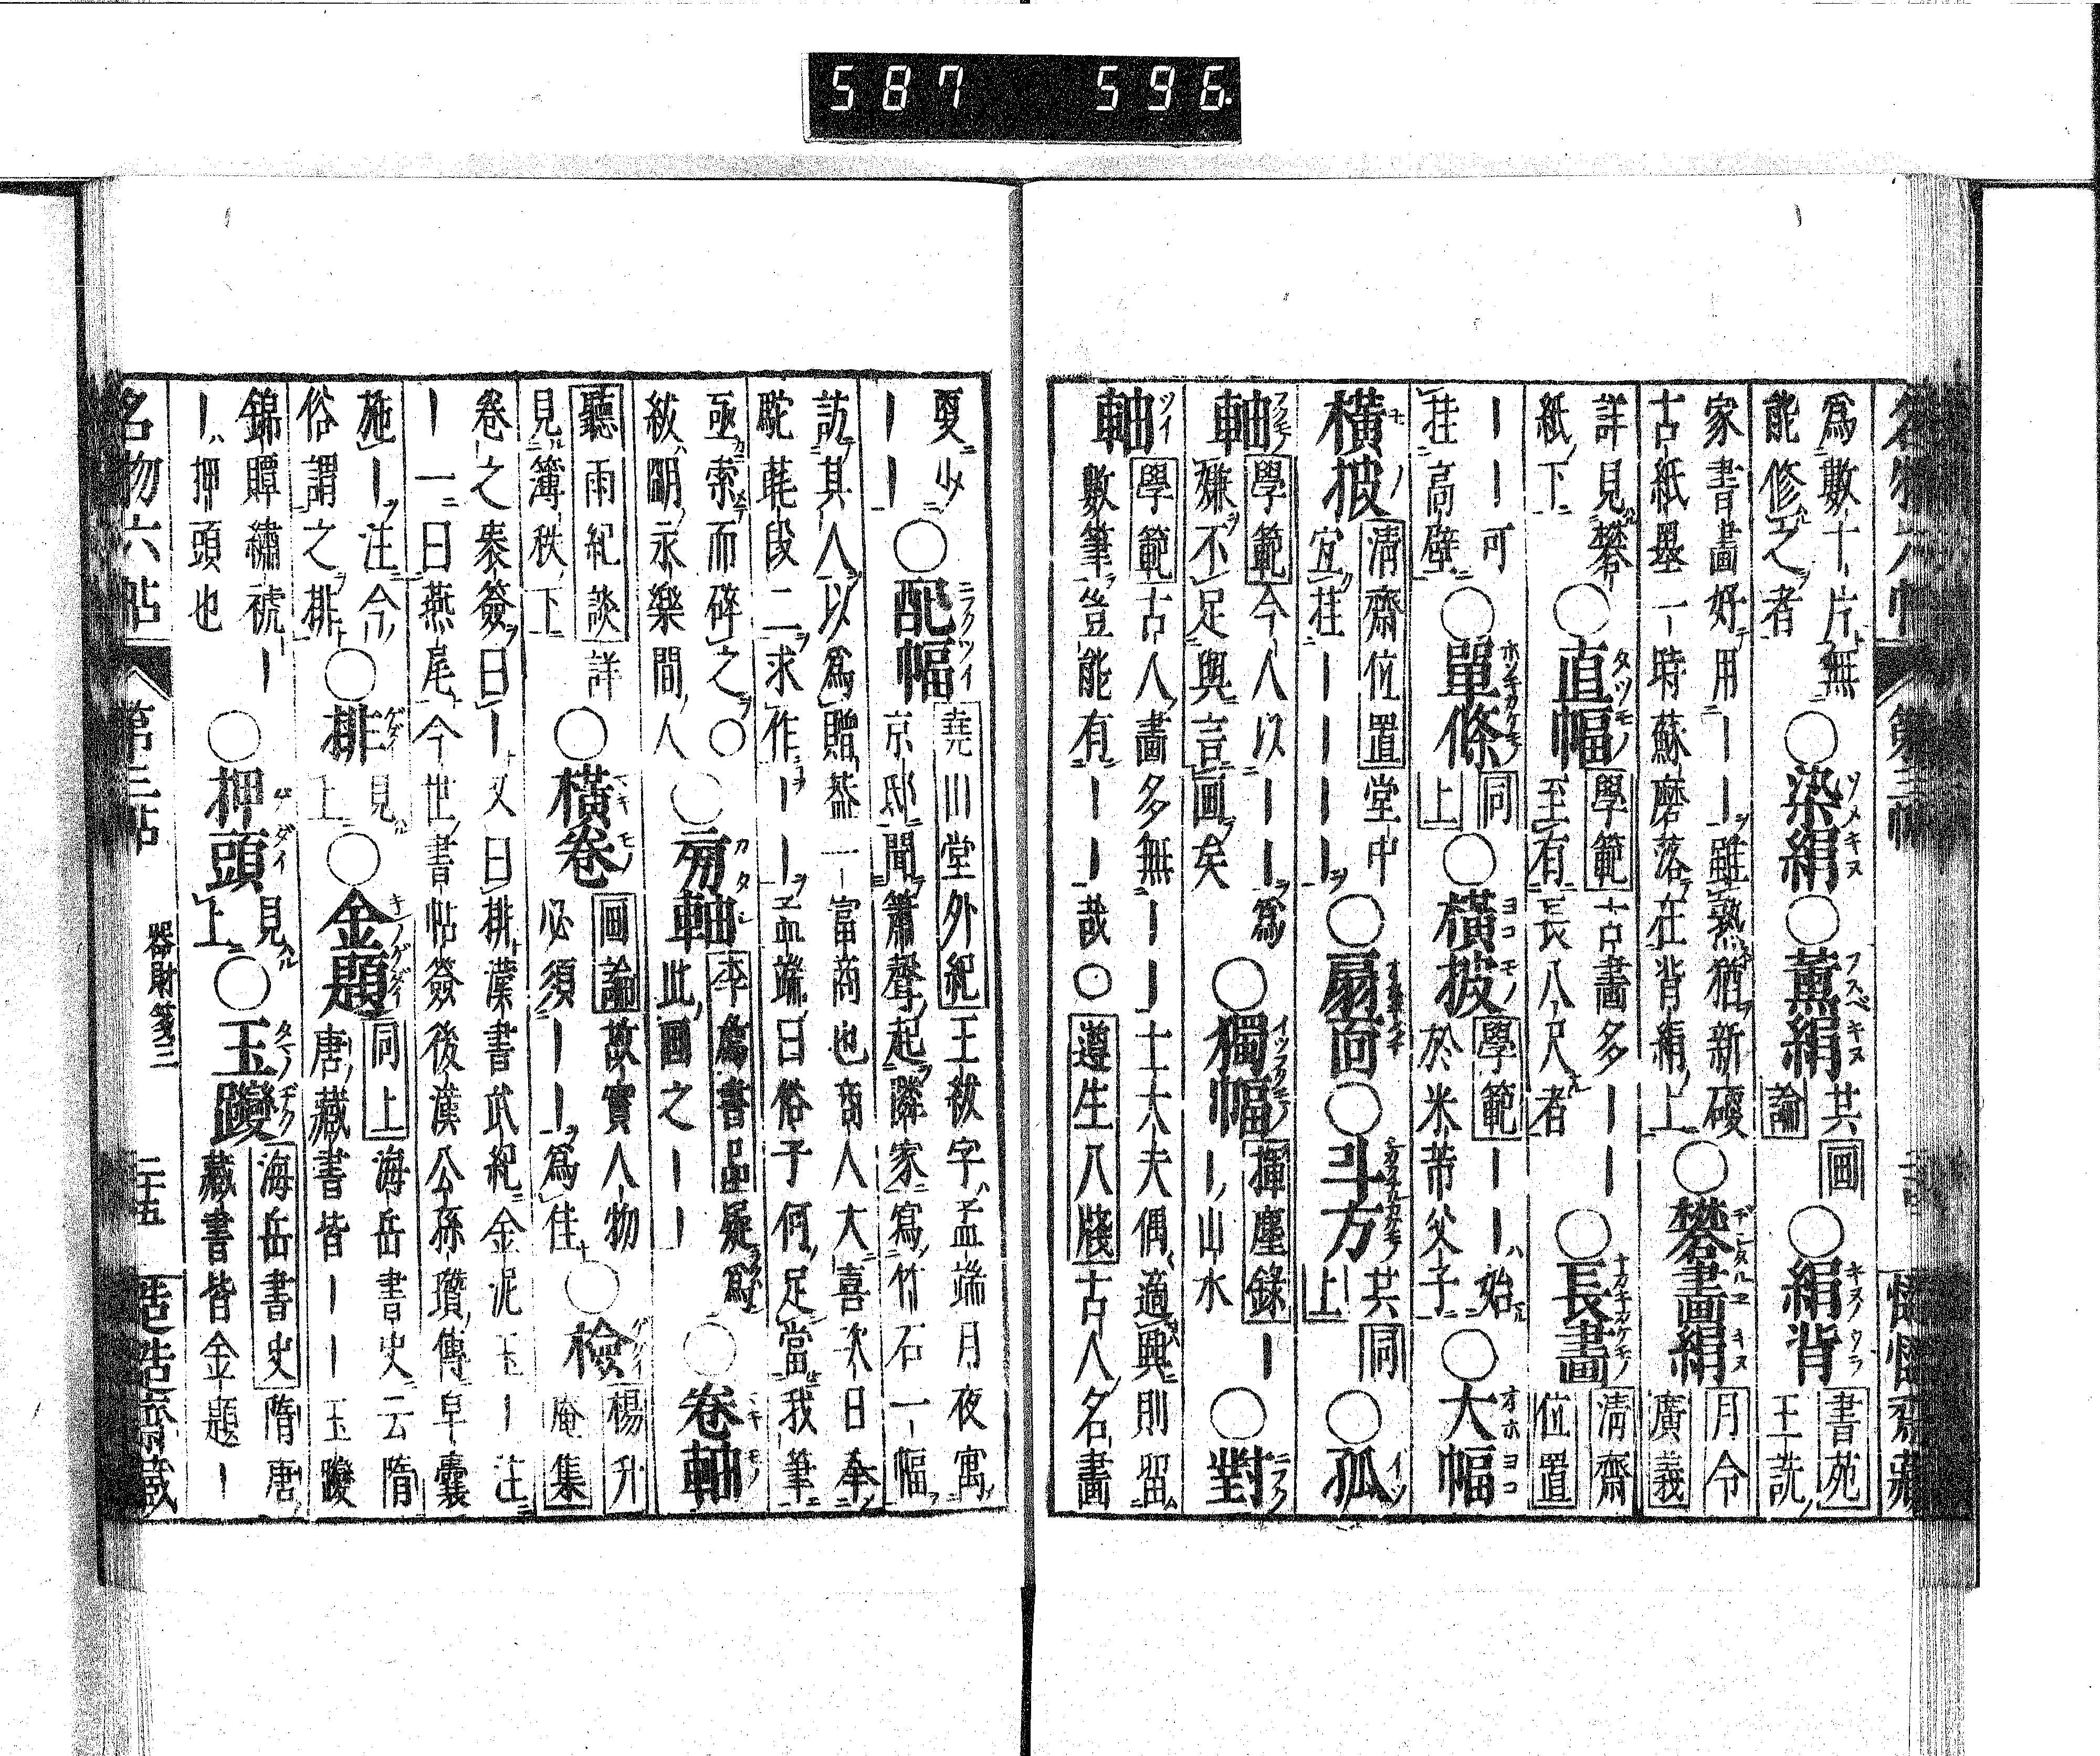 587 596
名物六帖 第三帖
爲數十片無能修之者○染絹○薫絹共画論○絹背書苑王詵
家書畫好用――雖熟猶新硬古紙墨一時蘇磨落在背絹上○礬畫絹月令廣義
詳見礬紙下○直幅學範古畫多――至有長八尺者○長畫清齋位置
―――可挂高壁○單條同上○橫披學範――始於米芾父子○大幅
橫披清齋位置堂中宜挂――――○扇面○斗方共同上○孤
軸學範今人以――爲嫌不足與言画矣○獨幅揮塵錄――山水○對
軸學範古人畫多無――士大夫偶適興則留數筆豈能有――哉○遵生八牋古人名畫
夏少――○配幅堯山堂外紀王紱字孟端月夜寓京邸聞簫聲起隣家寫竹石一幅
訪其人以爲贈盖一富商也商人大喜次日奉駝毧段二求作――孟端曰俗子何足當我筆
亟索而碎之○紱明永樂間人○軸本爲書品疑爲此画之――○卷軸
聽雨紀談詳見簿秩下○橫卷画論故實人物必須――爲佳○檢楊升庵集
卷之簽曰―又曰排漢書武紀金泥玉―注―一曰燕尾今世書帖簽後漢公孫瓚傳皁囊
施―注今俗謂之排○排見上○金題同上海岳書史云隋唐藏書皆――玉躞
錦贉繡褫――押頭也○押頭見上○玉躞海岳書史隋唐藏書皆金題―
名物六帖 第三帖 器財箋三 二十五